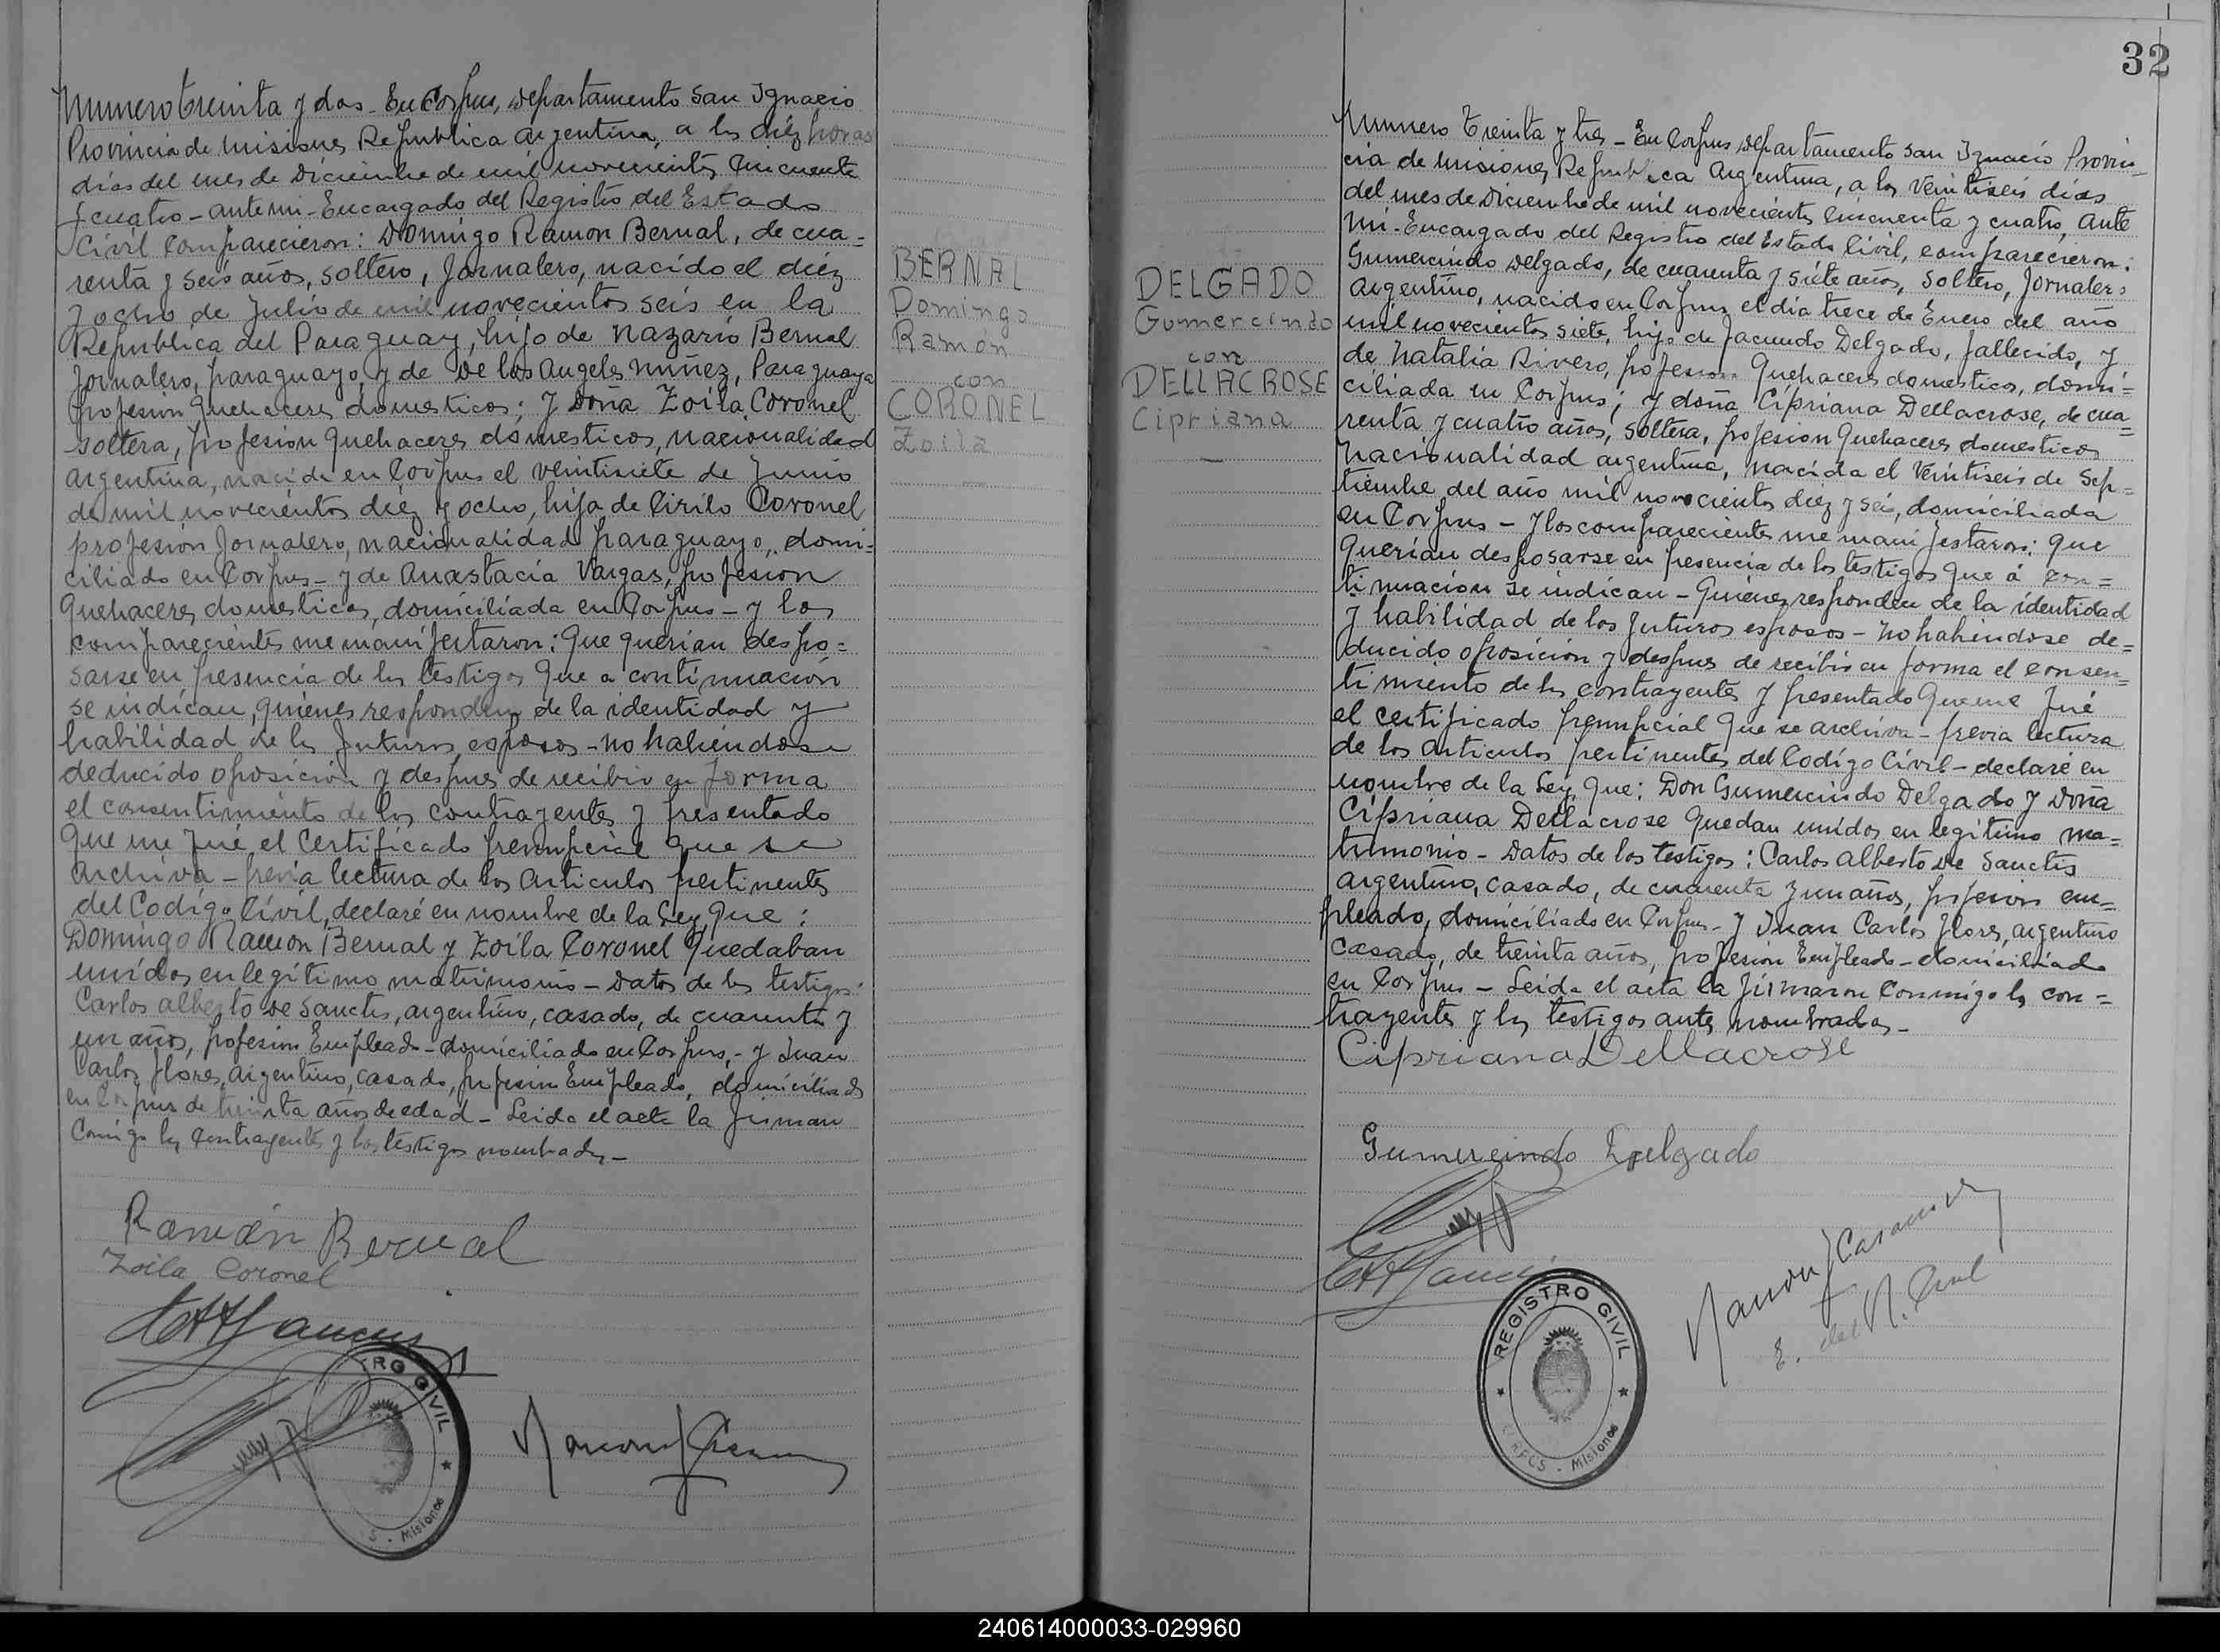 Numero treinta y dos - En Corpus, departamento San Ignacio
Provincia de Misiones Republica Argentina, a los diéz horas
días del mes de Diciembre de mil novecientos cincuenta
y cuatro - ante mi - Encargado del Registro del Estado
Civil Comparecieron: Domingo Ramon Bernal, de cua=
renta y seis años, soltero, Jornalero, nacido el diéz
y ocho de Julio de mil novecientos seis en la
Republica del Paraguay, hijo de Nazario Bernal
Jornalero, paraguayo, y de De los Angeles Nuñez, Paraguaya
profesion Quehaceres domesticos; y Doña Zoila Coronel
soltera, profesion Quehaceres domesticos, nacionalidad
argentina, nacida en Corpus el veintisiete de Junio
de mil novecientos diéz y ocho, hija de Cirilo Coronel
profesión Jornalero, nacionalidad paraguayo, domi=
ciliado en Corpus - y de Anastacia Vargas, profesion
Quehaceres domesticos, domiciliada en Corpus - y los
comparecientes me manifestaron: Que querian despo=
sarse en presencia de los testigos que a continuación
se indican, quiénes responden de la identidad y
habilidad de los futuros esposos - no habiéndose
deducido oposición y despues de recibir en forma
el consentimiento de los contrayentes y presentado
Que me fué el Certificado prenupcial que se
archiva - previa lectura de los Articulos pertinentes
del Codigo Civil, declaré en nombre de la Ley, Que:
Domingo Ramon Bernal y Zoila Coronel Quedaban
unidos en legítimo matrimonio - Datos de los testigos:
Carlos Alberto De Sanctis, argentino, casado, de cuarenta y
un años, profesion Empleado - domiciliado en Corpus, - y Juan
Carlos Flores, argentino, casado, profesion Empleado, domiciliado
en Corpus de treinta años de edad - Leida el acta la firman
Conmigo los Contrayentes y los testigos nombrados -
Ramón Bernal
Zoila Coronel
TRO CIVIL
S. - Misiones
BERNAL
Domingo
Ramon
con
CORONEL
Zoila
32
DELGADO
Gumercindo
con
DELLACROSE
Cipriana
Numero Treinta y tres - En Corpus departamento San Ignacio Provin=
cia de Misiones Republica Argentina, a los Veintiseis días
del mes de Diciembre de mil novecientos cincuenta y cuatro, ante
mi - Encargado del Registro del Estado Civil, comparecieron:
Gumercindo Delgado, de cuarenta y siéte años, soltero, Jornalero
argentino, nacido en Corpus el día trece de Enero del año
mil novecientos siete, hijo de Facundo Delgado, fallecido, y
de Natalia Rivero, profesion Quehaceres domesticos, domi=
ciliada en Corpus; y doña Cipriana Dellacrose, de cua=
renta y cuatro años, soltera, profesion Quehaceres domesticos
Nacionalidad argentina, nacida el Veintiseis de Sep=
tiembre del año mil novecientos diéz y seis, domiciliada
en Corpus - y los comparecientes me manifestaron: Que
Querian desposarse en presencia de los testigos Que á con=
tinuación se indican - Quiénes responden de la identidad
y habilidad de los futuros esposos - no habiéndose de=
ducido oposición y despues de recibir en forma el consen=
timiento de los contrayentes y presentado Que me fué
el certificado prenupcial que se archiva - previa lectura
de los articulos pertinentes del Codigo Civil - declaré en
nombre de la Ley Que: Don Gumercindo Delgado y Doña
Cipriana Dellacrose Quedan unidos en legitimo ma=
trimonio - Datos de los testigos: Carlos Alberto De Sanctis
argentino, casado, de cuarenta y un años, profesion em=
pleado, domiciliado en Corpus - y Juan Carlos Flores, argentino
casado, de treinta años, profesion Empleado - domiciliado
en Corpus - Leida el acta la firmaron Conmigo los con=
trayentes y los testigos antes nombrados -
Cipriana Dellacrose
Gumercindo Delgado
Ramon J Casanova
E. del R. Civil
REGISTRO CIVIL
CORPUS - Misiones
240614000033-029960